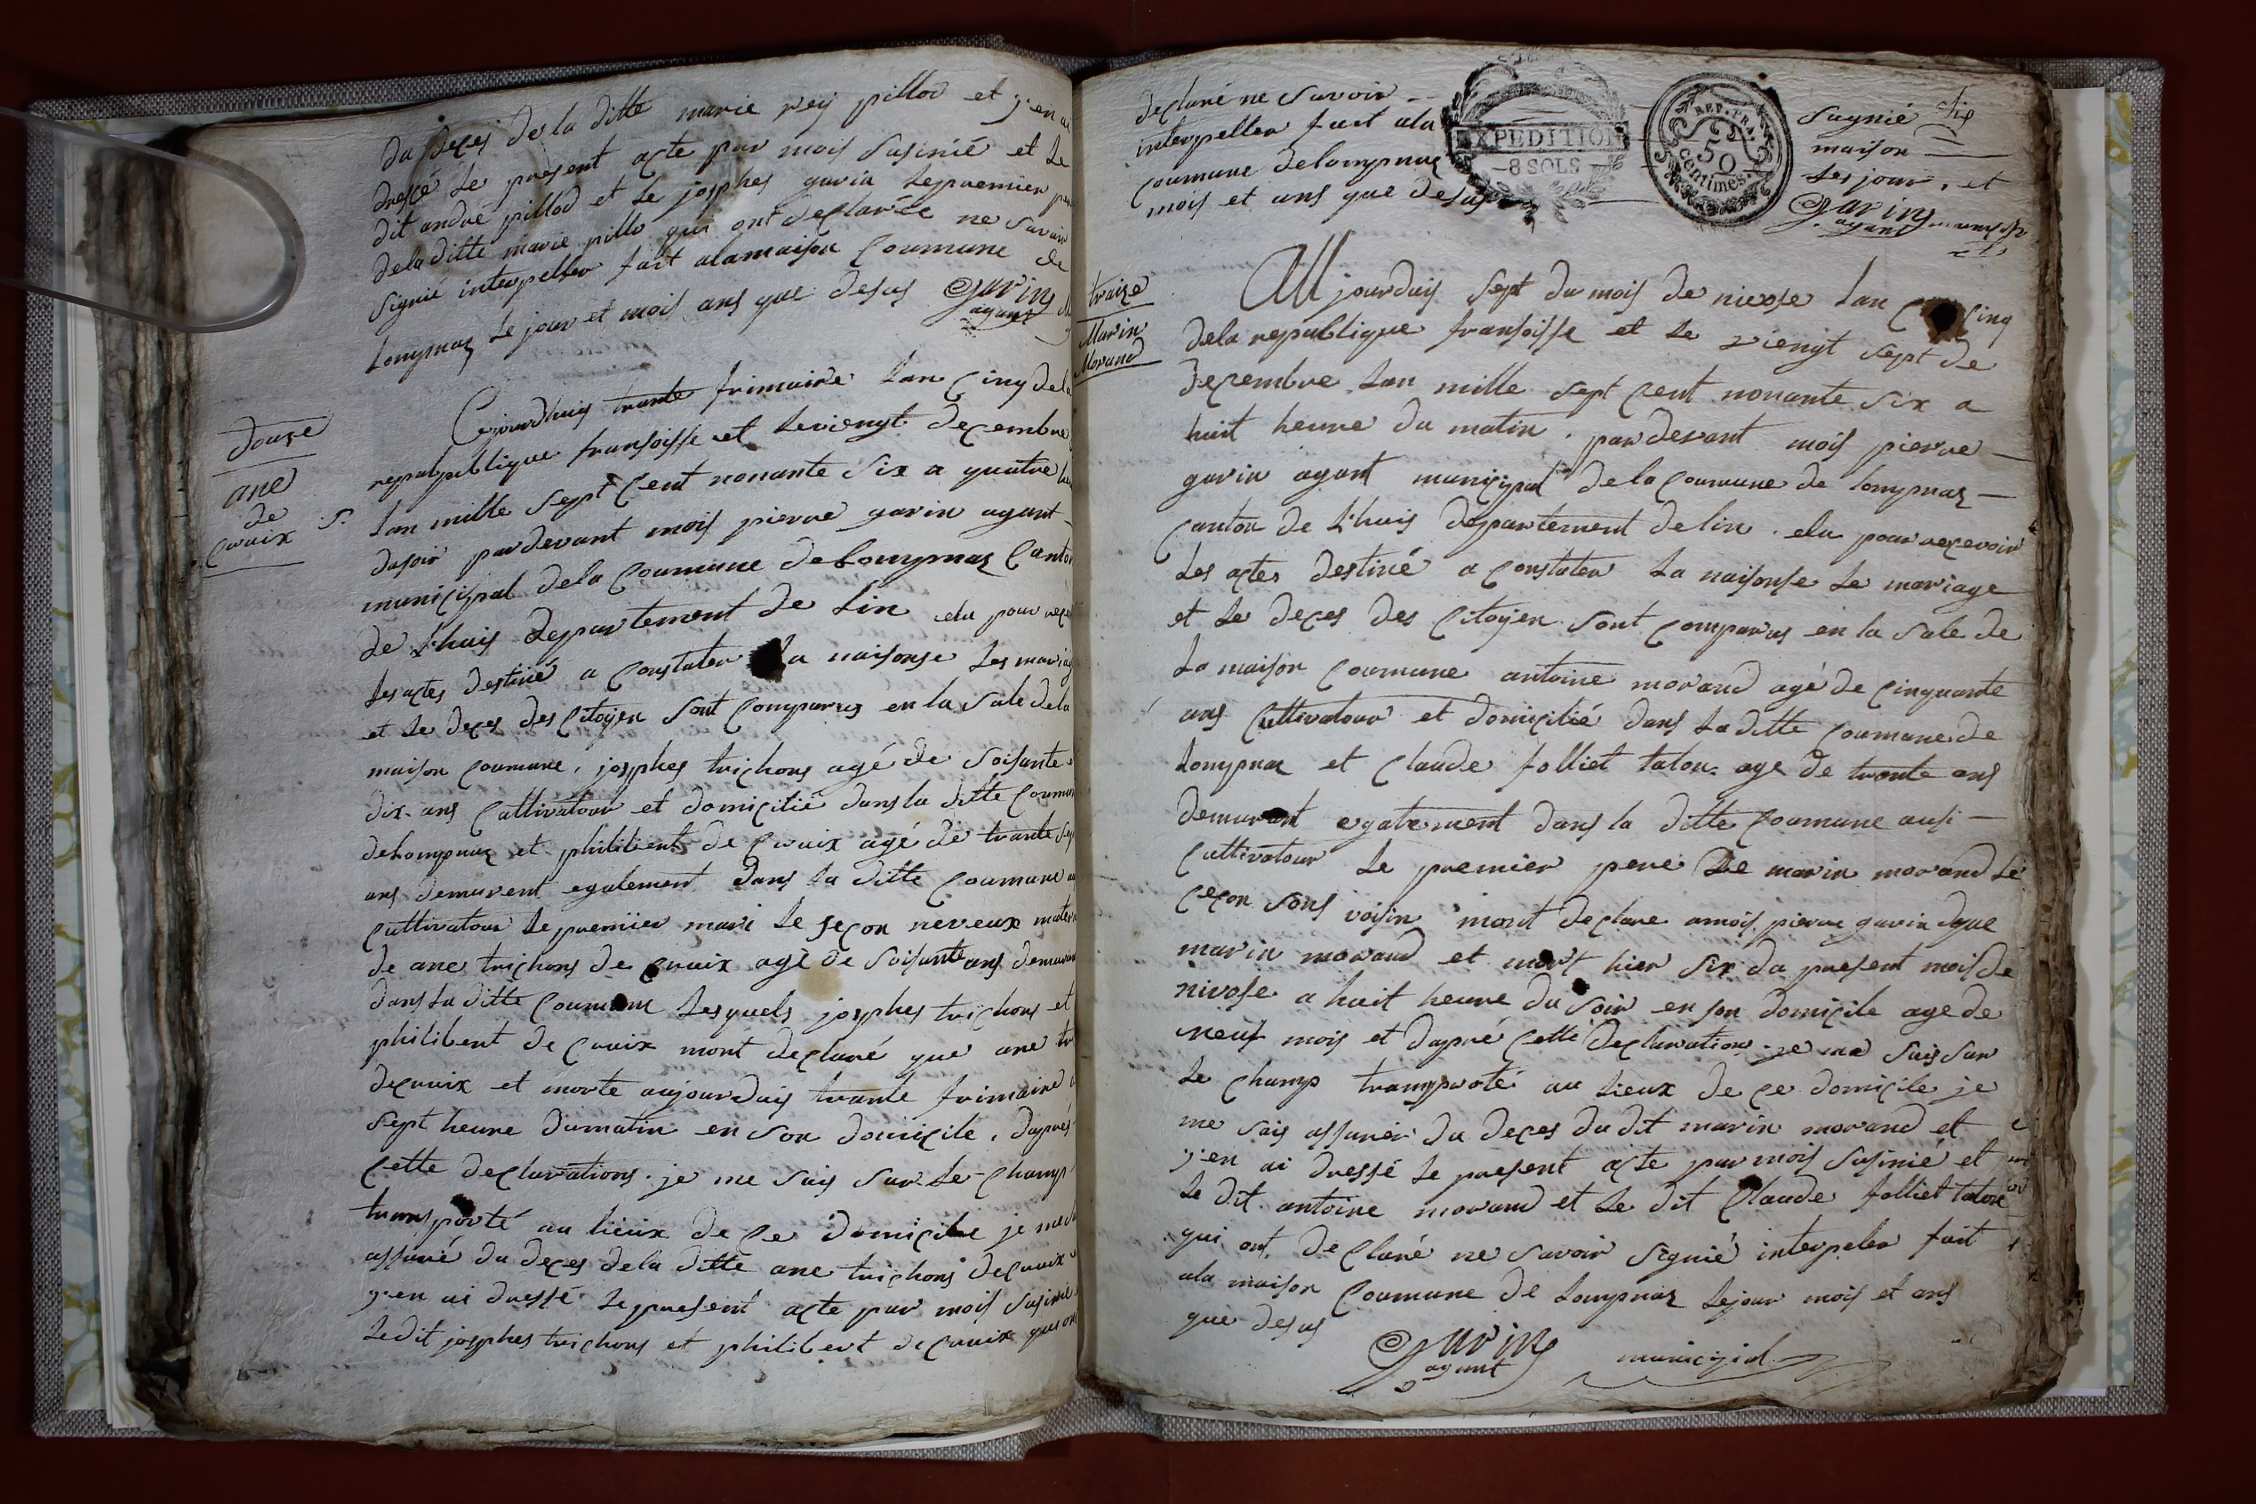 du deces de la ditte marie rey pillod et j'en ai
dressé le present acte par mois susinié et le
dit andré pillod et le josphes gavin le premier
de la ditte marie pillo qui ont declarée ne savoir
signié interpeller fait a la maison coumune de
Lompnaz le jour et mois ans que desus Garin
agant
douze
ane
de
craix
Cejourdhuis trante frimaire l'an cinq de la
repulpublique fransoisse et le viengt decembre
l'an mille sept cent nonante six a quatre
du soir pardevant mois pierre garin agant
municipal de la coumune de Lompnaz canton
de l'huis departement de lin elu pour
les actes destiné a constater la naisonse les
et le deces des citoÿen sont comparus en la sale de la
maison coumune, josphes trichons agé de soisante
dix ans cultivatour et domicilié dans la ditte
de Lompnaz et philibent de craix agé de trante
ans demurent egalement dans la ditte coumune
cultivatour le premiier mari le seçon neveux
de ane trichons de craix agé de soisante ans
dans la ditte coumune lesquels josphes trichons et
philibent de craix mont declaré que ane
decraix et morte aujourduis trante frimaire
sept heure du matin en son domicile, dapres
cette declarations je me suis sur le champ
transporté au lieux de ce domicile je me
assuré du deces de la ditte ane trichons decraix
j'en ai dressé le present acte par mois susinié
le dit josphes trichons et philibert de craix
declaré ne savoir
interpeller fait a la
coumune de Lompnaz
mois et ans que desus
EXPEDITION
8 SOLS
REP. FRA.
50
centimes.
sagnié
maison
les jour, et
Garin
agant
traize
Marin
Morand
Aujourduis sept du mois de nivose l'an cinq
de la republique fransoisse et le viengt sept de
decembre l'an mille sept cent nonante six a
huit heure du matin par devant mois pierre
garin agant municipal de la coumune de Lompnaz
canton de l'huis departement de lin elu pour recevoir
les actes destiné a constater la naisonse le mariage
et le deces des citoÿen sont comparus en la sale de
la maison coumune antoine morand agé de cinquante
ans cultivatour et domicilié dans la ditte coumune de
Lompnaz et claude folliet talon agé de trante ans
demurant egalement dans la ditte coumune ausi
cultivatour le premier pere de marin morand le
ceçon sons voisin mont declare a mois pierre garin que
marin morand et mort hier six du present mois de
nivose a huit heure du soir en son domicile age de
neuf mois et dapré cette declaration je me suis sur
le champ transporté au lieux de ce domicile je
me suis assurér du deces du dit marin morand et
j'en ai dressé le present acte par mois susinié et
le dit antoine morand et le dit claude folliet talon
qui ont declaré ne savoir signié interpeler fait
a la maison coumune de Lompnaz le jour mois et ans
que desus
Garin
agant municipal